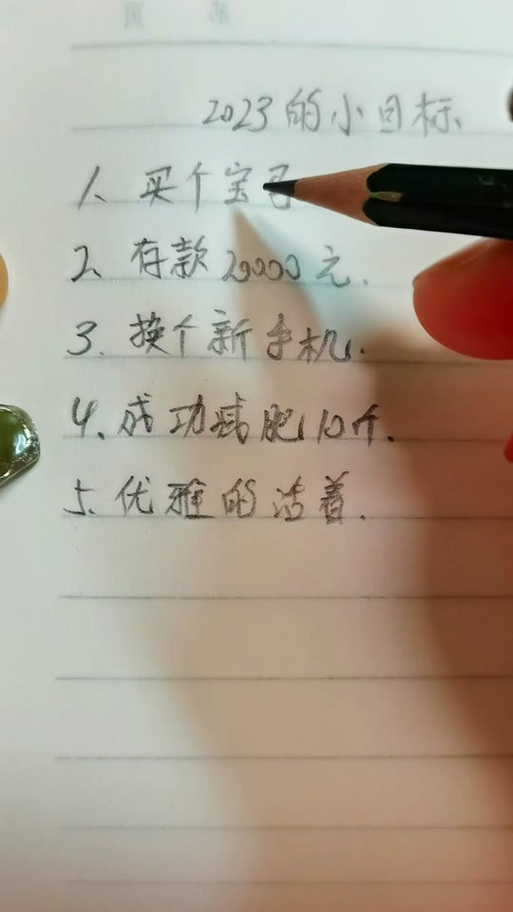 2023的小目标、
1、买个宝马
2、存款20000元.
3.换个新手机.
4、成功减肥10斤.
5、优雅的活着.